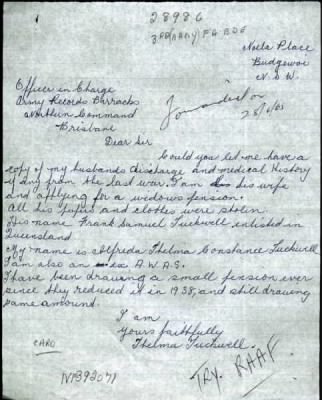 28986
3RD/ARMY FG BDE
Noela Place
Budgewoi
N.S.W.
Officer in Charge
Army Records Barracks
Northern Command
Brisbane
28/6/65
Dear Sir
Could you let me have a
copy of my husbands discharge and medical History
if any from the last war. I am his wife
and applying for a widows pension.
All his papers and clothes were stolen.
His name Frank Samuel Tuckwell enlisted in
Queensland
My name is Alfreda Thelma Constance Tuckwell
I am also an ex A.W.A.S.
I have been drawing a small pension ever
since they reduced it in 1938, and still drawing
same amound.
I am
Yours faithfully
Thelma Tuckwell.
CARD
NB92071
TRY. RAAF.